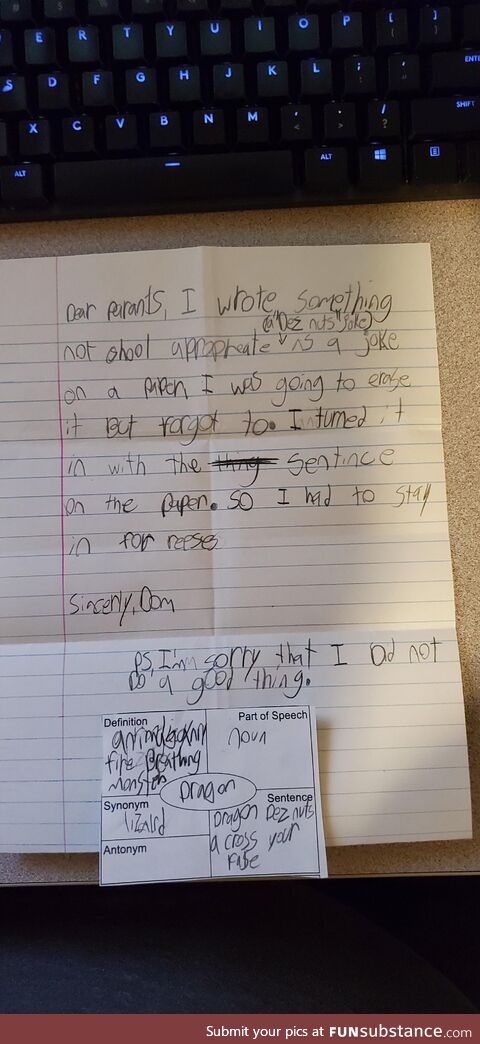 E R T Y U I O P [ ]
S D F G H J K L ; ' ENTE
X C V B N M / ? SHIFT
ALT ALT
Dear parants, I wrote something
(a "Dez nuts" joke)
not shool appropreate as a joke
on a paper, I was going to erase
it But forgot to. I inturned it
in with the thing sentince
on the paper. SO I had to stay
in for reeses
Sincerly, Dom
PS, I'm sorry that I Did not
Do a good thing.
Definition
fire Breathing
monster
Part of Speech
noun
Dragon
Synonym
lizard
Sentence
Dragon Dez nuts
a cross your
fase
Antonym
Submit your pics at FUNsubstance.com